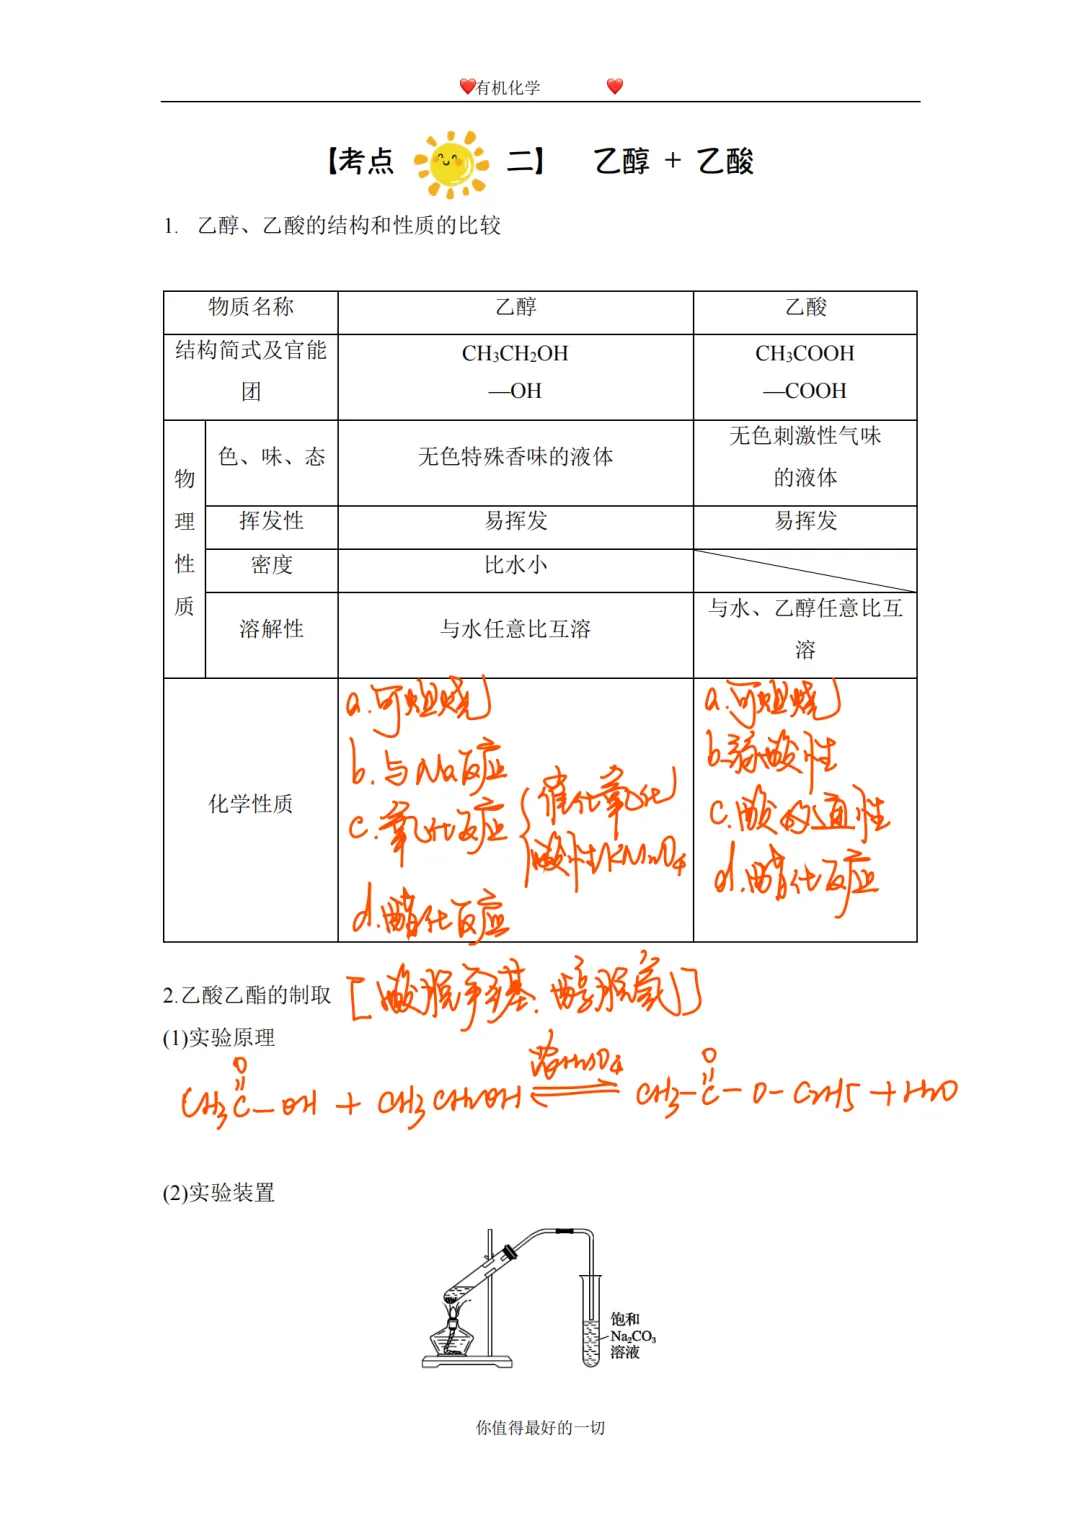 ❤️有机化学 ❤️
【考点 二】 乙醇 + 乙酸
1. 乙醇、乙酸的结构和性质的比较
物质名称 乙醇 乙酸
结构简式及官能团 CH₃CH₂OH —OH CH₃COOH —COOH
物理性质
色、味、态 无色特殊香味的液体 无色刺激性气味的液体
挥发性 易挥发 易挥发
密度 比水小
溶解性 与水任意比互溶 与水、乙醇任意比互溶
化学性质
a.可燃烧
b.与Na反应
c.氧化反应 { 催化氧化
酸性KMnO4
d.酯化反应
a.可燃烧
b.弱酸性
c.酸的通性
d.酯化反应
2.乙酸乙酯的制取 [酸脱羟基.醇脱氢]
(1)实验原理
浓H2SO4
O O
CH3C-OH + CH3CH2OH ⇌ CH3-C-O-C2H5 + H2O
(2)实验装置
饱和
Na₂CO₃
溶液
你值得最好的一切